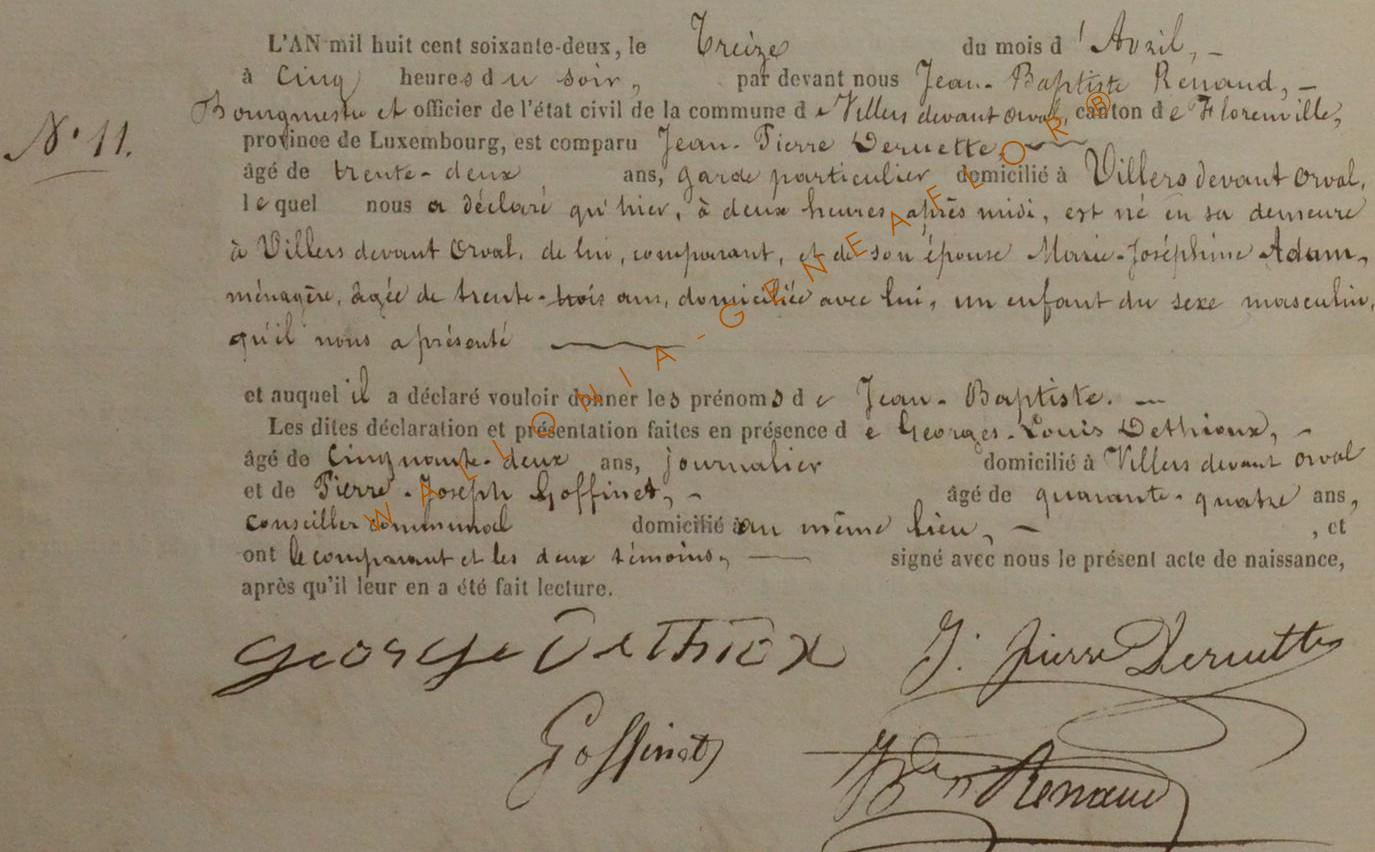 L'AN mil huit cent soixante-deux, le Treize du mois d'Avril, -
à Cinq heures du soir, par devant nous Jean-Baptiste Renaud, -
Bourgmestre et officier de l'état civil de la commune de Villers devant orval, canton de Florenville,
N° 11.
province de Luxembourg, est comparu Jean-Pierre Deruette,
âgé de trente-deux ans, garde particulier domicilié à Villers devant orval,
lequel nous a déclaré qu'hier, à deux heures après midi, est né en sa demeure
à Villers devant Orval, de lui, comparant, et de son épouse Marie-Joséphine Adam,
ménagère, âgée de trente-trois ans, domiciliée avec lui, un enfant du sexe masculin,
qu'il nous a présenté
et auquel il a déclaré vouloir donner les prénoms de Jean-Baptiste. -
Les dites déclaration et présentation faites en présence de Georges-Louis Dethioux, -
âgé de Cinquante-deux ans, journalier domicilié à Villers devant orval
et de Pierre-Joseph Goffinet, - âgé de quarante-quatre ans,
Conseiller communal domicilié au même lieu, - , et
ont le comparant et les deux témoins, - signé avec nous le présent acte de naissance,
après qu'il leur en a été fait lecture.
George DeThioX J. Pierre Deruette
Goffinet Renaud
WALLONIA-GENEAFLOR®